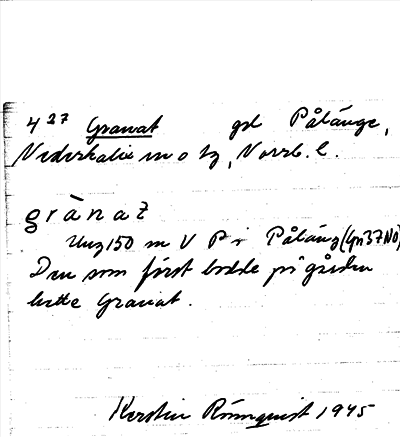 4 27 Granat gd Pålänge,
Nederkalix sn o tg, Norrb. l.
grànat
Ung 150 m V P i Påläng (Gn 37 NO)
Den som först bodde på gården
hette Granat.
Kerstin Rönnquist 1945